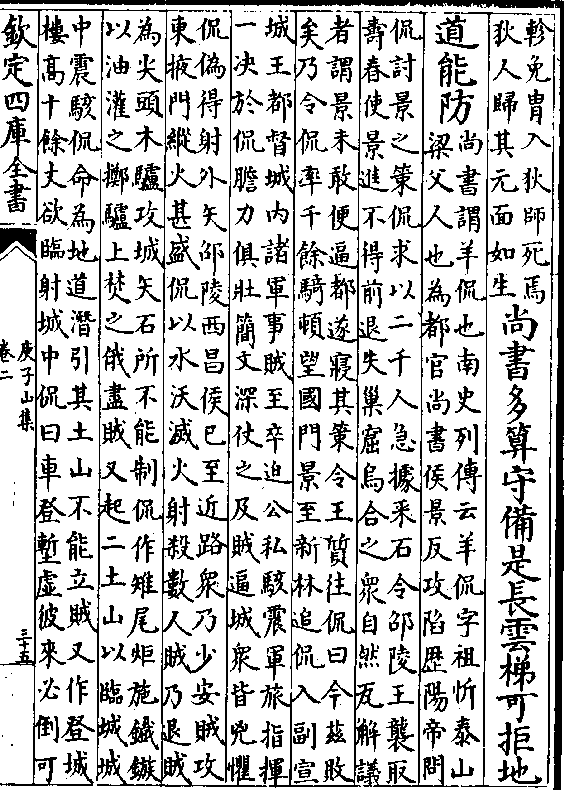 軫免冑入狄師死焉
狄人歸其元面如生
尚書多算守備是長雲梯可拒地
道能防
尚書謂羊侃也南史列傳云羊侃字祖忻泰山
梁父人也為都官尚書侯景反攻陷歷陽帝問
侃討景之策侃求以二千人急據采石令邵陵王襲取
壽春使景進不得前退失巢窟烏合之衆自然瓦解議
者謂景未敢便逼都遂寢其策令王質往侃曰今茲敗
矣乃令侃率千餘騎頓望國門景至新林追侃入副宣
城王都督城内諸軍事賊至卒迫公私駭震軍旅指揮
一决於侃膽力俱壯簡文深仗之及賊逼城衆皆兇懼
侃偽得射外矢邵陵西昌侯已至近路衆乃少安賊攻
東掖門縱火甚盛侃以水沃滅火射殺數人賊乃退賊
為尖頭木驢攻城矢石所不能制侃作雉尾炬施鐵鏃
以油灌之擲驢上焚之俄盡賊又起二土山以臨城城
中震駭侃命為地道潛引其土山不能立賊又作登城
樓高十餘丈欲臨射城中侃曰車登塹虛彼來必倒可
欽定四庫全書
庾子山集
卷二
三十五